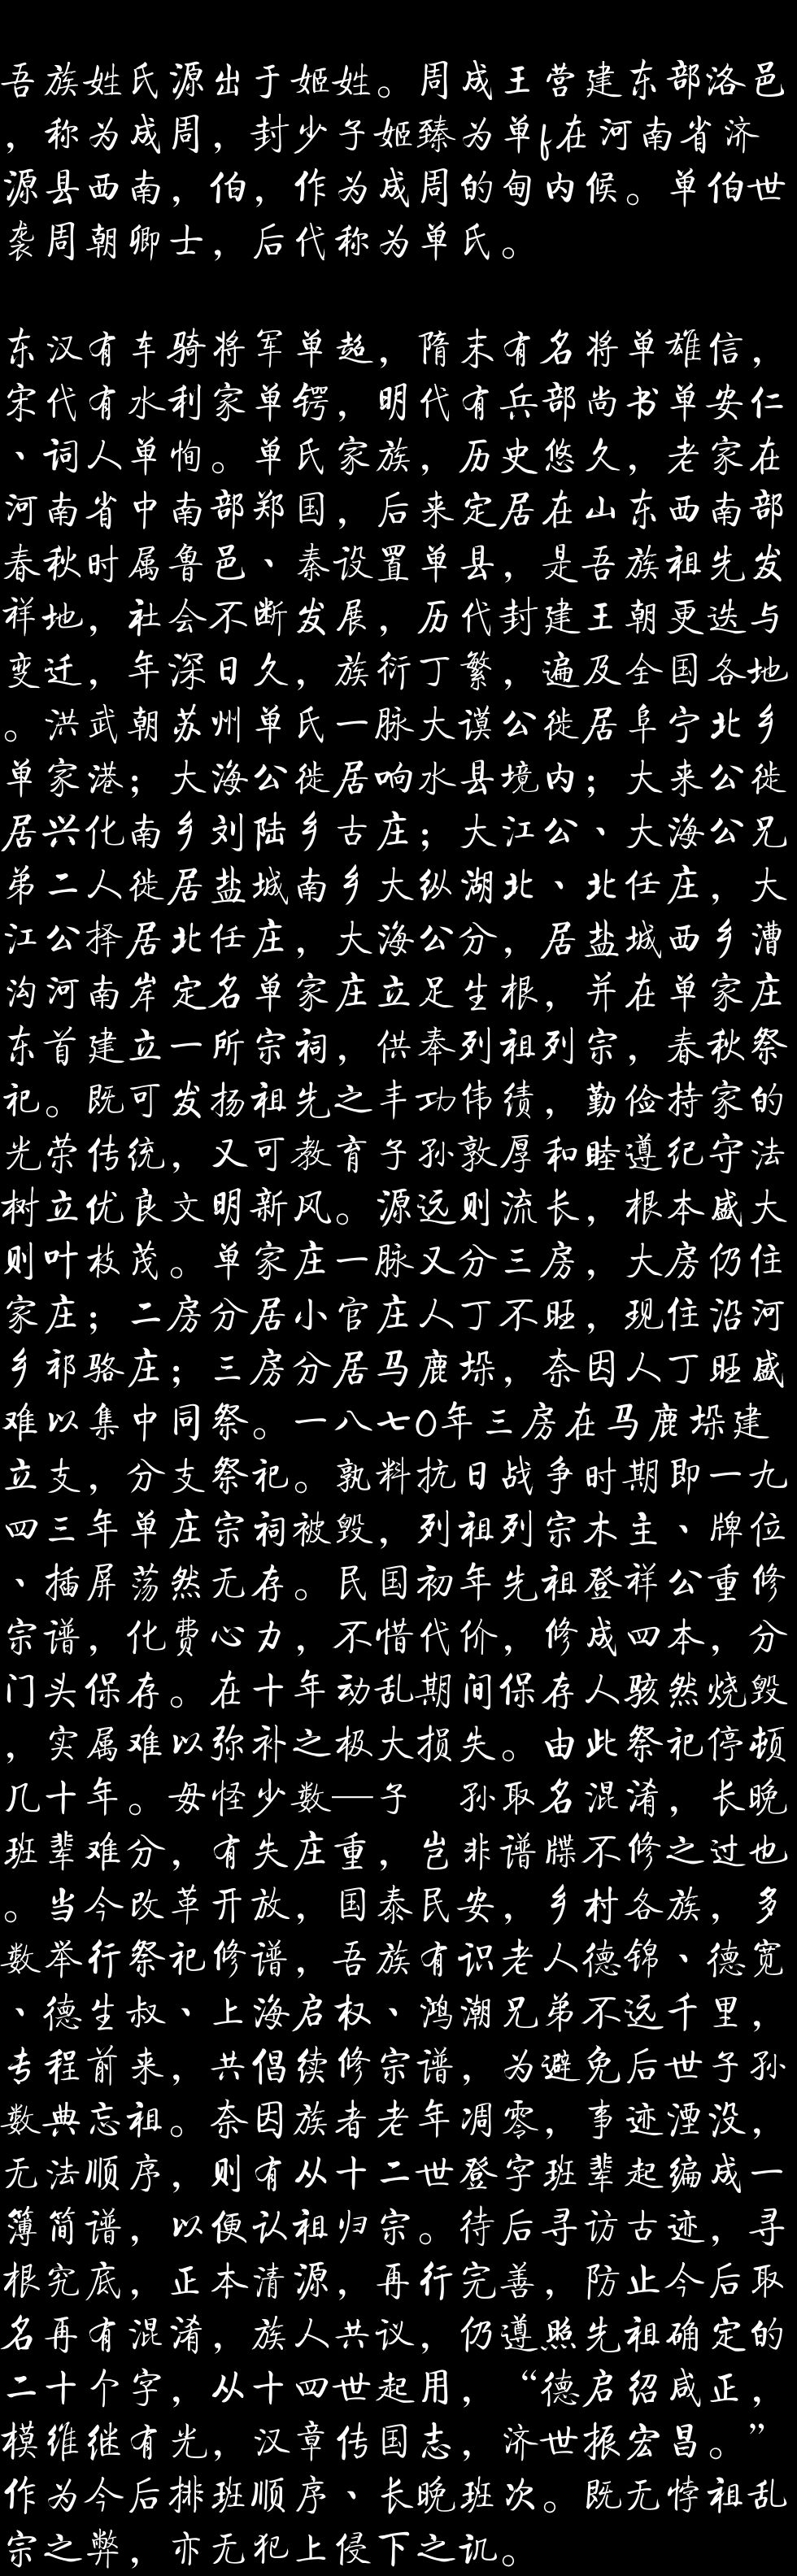 吾族姓氏源出于姬姓。周成王营建东部洛邑
，称为成周，封少子姬臻为单f在河南省济
源县西南，伯，作为成周的甸内候。单伯世
袭周朝卿士，后代称为单氏。
东汉有车骑将军单超，隋末有名将单雄信，
宋代有水利家单锷，明代有兵部尚书单安仁
、词人单恂。单氏家族，历史悠久，老家在
河南省中南部郑国，后来定居在山东西南部
春秋时属鲁邑、秦设置单县，是吾族祖先发
祥地，社会不断发展，历代封建王朝更迭与
变迁，年深日久，族衍丁繁，遍及全国各地
。洪武朝苏州单氏一脉大谟公徙居阜宁北乡
单家港；大海公徙居响水县境内；大来公徙
居兴化南乡刘陆乡古庄；大江公、大海公兄
弟二人徙居盐城南乡大纵湖北、北任庄，大
江公择居北任庄，大海公分，居盐城西乡漕
沟河南岸定名单家庄立足生根，并在单家庄
东首建立一所宗祠，供奉列祖列宗，春秋祭
祀。既可发扬祖先之丰功伟绩，勤俭持家的
光荣传统，又可教育子孙敦厚和睦遵纪守法
树立优良文明新风。源远则流长，根本盛大
则叶枝茂。单家庄一脉又分三房，大房仍住
家庄；二房分居小官庄人丁不旺，现住沿河
乡祁骆庄；三房分居马鹿垛，奈因人丁旺盛
难以集中同祭。一八七0年三房在马鹿垛建
立支，分支祭祀。孰料抗日战争时期即一九
四三年单庄宗祠被毁，列祖列宗木主、牌位
、插屏荡然无存。民国初年先祖登祥公重修
宗谱，化费心力，不惜代价，修成四本，分
门头保存。在十年动乱期间保存人骇然烧毁
，实属难以弥补之极大损失。由此祭祀停顿
几十年。毋怪少数—子　孙取名混淆，长晚
班辈难分，有失庄重，岂非谱牒不修之过也
。当今改革开放，国泰民安，乡村各族，多
数举行祭祀修谱，吾族有识老人德锦、德宽
、德生叔、上海启权、鸿潮兄弟不远千里，
专程前来，共倡续修宗谱，为避免后世子孙
数典忘祖。奈因族者老年凋零，事迹湮没，
无法顺序，则有从十二世登字班辈起编成一
簿简谱，以便认祖归宗。待后寻访古迹，寻
根究底，正本清源，再行完善，防止今后取
名再有混淆，族人共议，仍遵照先祖确定的
二十个字，从十四世起用，“德启绍咸正，
模维继有光，汉章传国志，济世振宏昌。”
作为今后排班顺序、长晚班次。既无悖祖乱
宗之弊，亦无犯上侵下之讥。